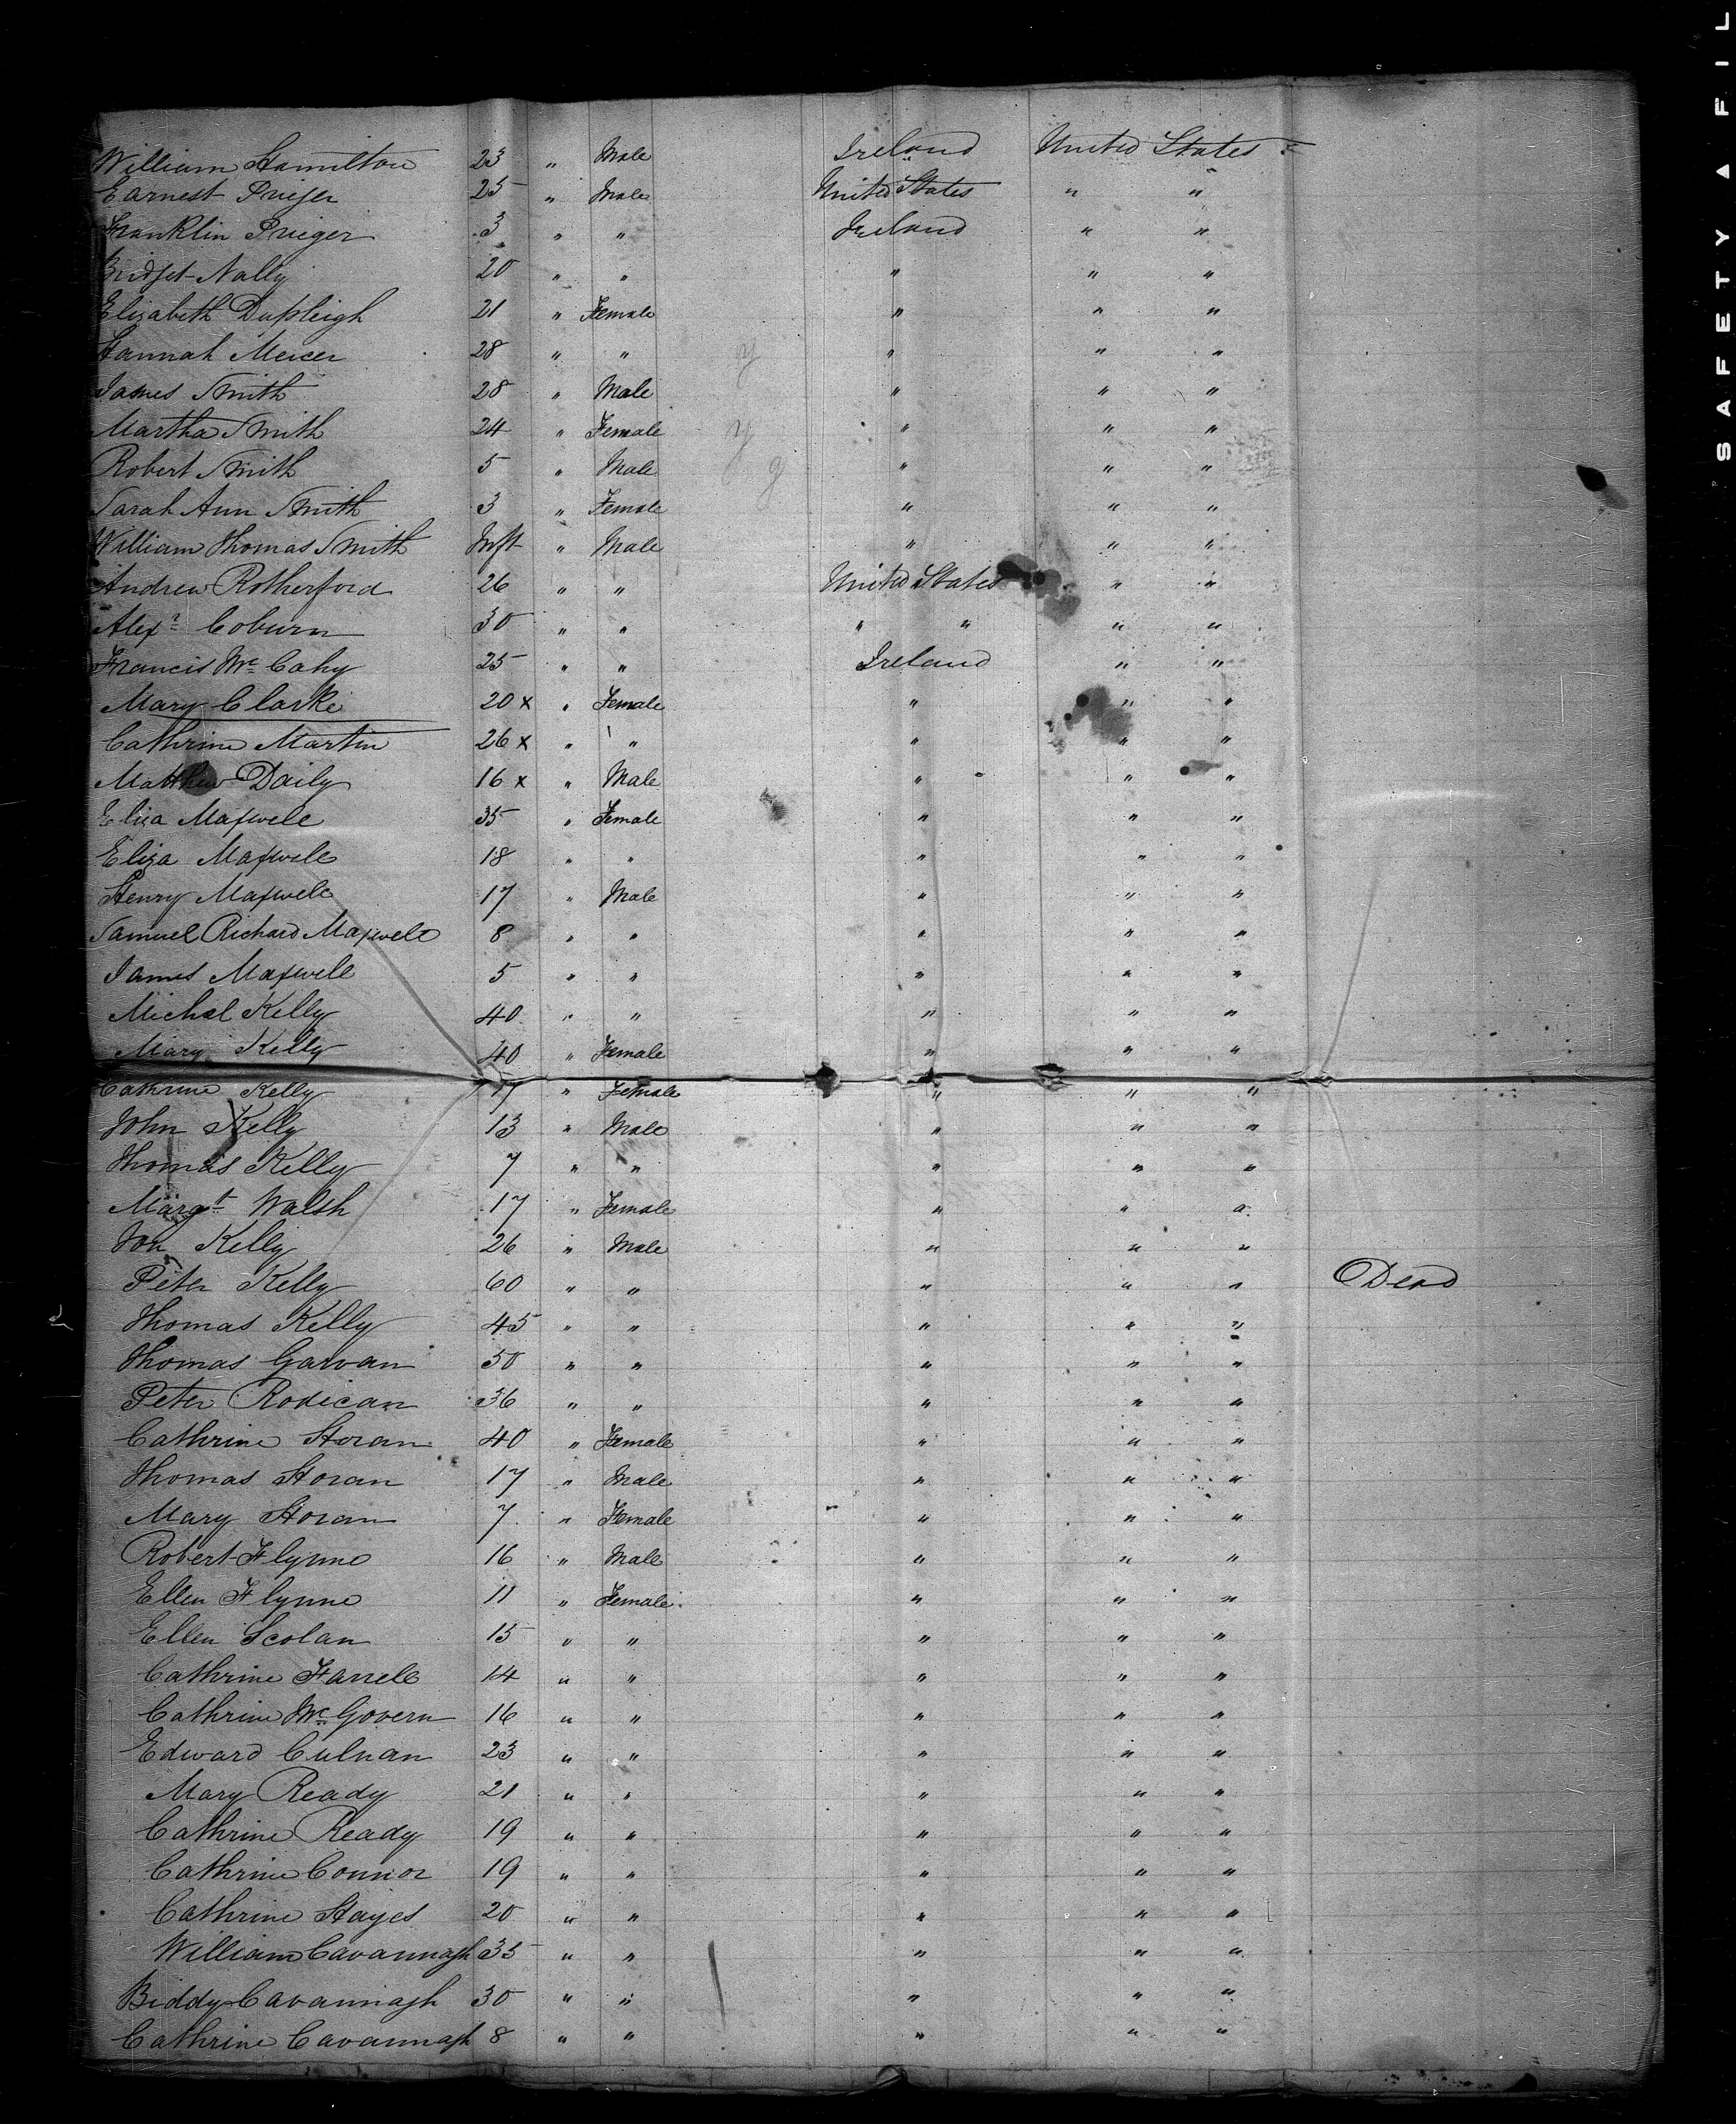 William Hamilton 23 " Male Ireland United States
Earnest Prieger 25 " Male United States " "
Franklin Prieger 3 " " Ireland " "
Bridget Nally 20 " " " " "
Elizabeth Dupleigh 21 " Female " " "
Hannah Mercer 28 " " y " " "
James Smith 28 " Male " " "
Martha Smith 24 " Female y " " "
Robert Smith 5 " Male y g " " "
Sarah Ann Smith 3 " Female " " "
William Thomas Smith Inft " Male " " "
Andrew Rotherford 26 " " United States " "
Alexr Coburn 30 " " " " " "
Francis Mc Cahy 25 " " Ireland " "
Mary Clarke 20 x " Female " " "
Cathrine Martin 26 x " " " " "
Matthew Daily 16 x " Male " " "
Eliza Maxwell 35 " Female " " "
Eliza Maxwell 18 " " " " "
Henry Maxwell 17 " Male " " "
Samuel Richard Maxwell 8 " " " " "
James Maxwell 5 " " " " "
Michal Kelly 40 " " " " "
Mary Kelly 40 " Female " " "
Cathrine Kelly 17 " Female " " "
John Kelly 13 " Male " " "
Thomas Kelly 7 " " " " "
Margt Walsh 17 " Female " " "
Jon Kelly 26 " Male " " "
Peter Kelly 60 " " " " " Dead
Thomas Kelly 45 " " " " "
Thomas Garvan 50 " " " " "
Peter Rodican 36 " " " " "
Cathrine Horan 40 " Female " " "
Thomas Horan 17 " Male " " "
Mary Horan 7 " Female " " "
Robert Flynne 16 " Male " " "
Ellen Flynne 11 " Female " " "
Ellen Scolan 15 " " " " "
Cathrine Farrell 14 " " " " "
Cathrine Mc Govern 16 " " " " "
Edward Culnan 23 " " " " "
Mary Ready 21 " " " " "
Cathrine Ready 19 " " " " "
Cathrine Connor 19 " " " " "
Cathrine Hayes 20 " " " " "
William Cavannagh 35 " " " " "
Biddy Cavannagh 30 " " " " "
Cathrine Cavannagh 8 " " " " "
SAFETY A FIL